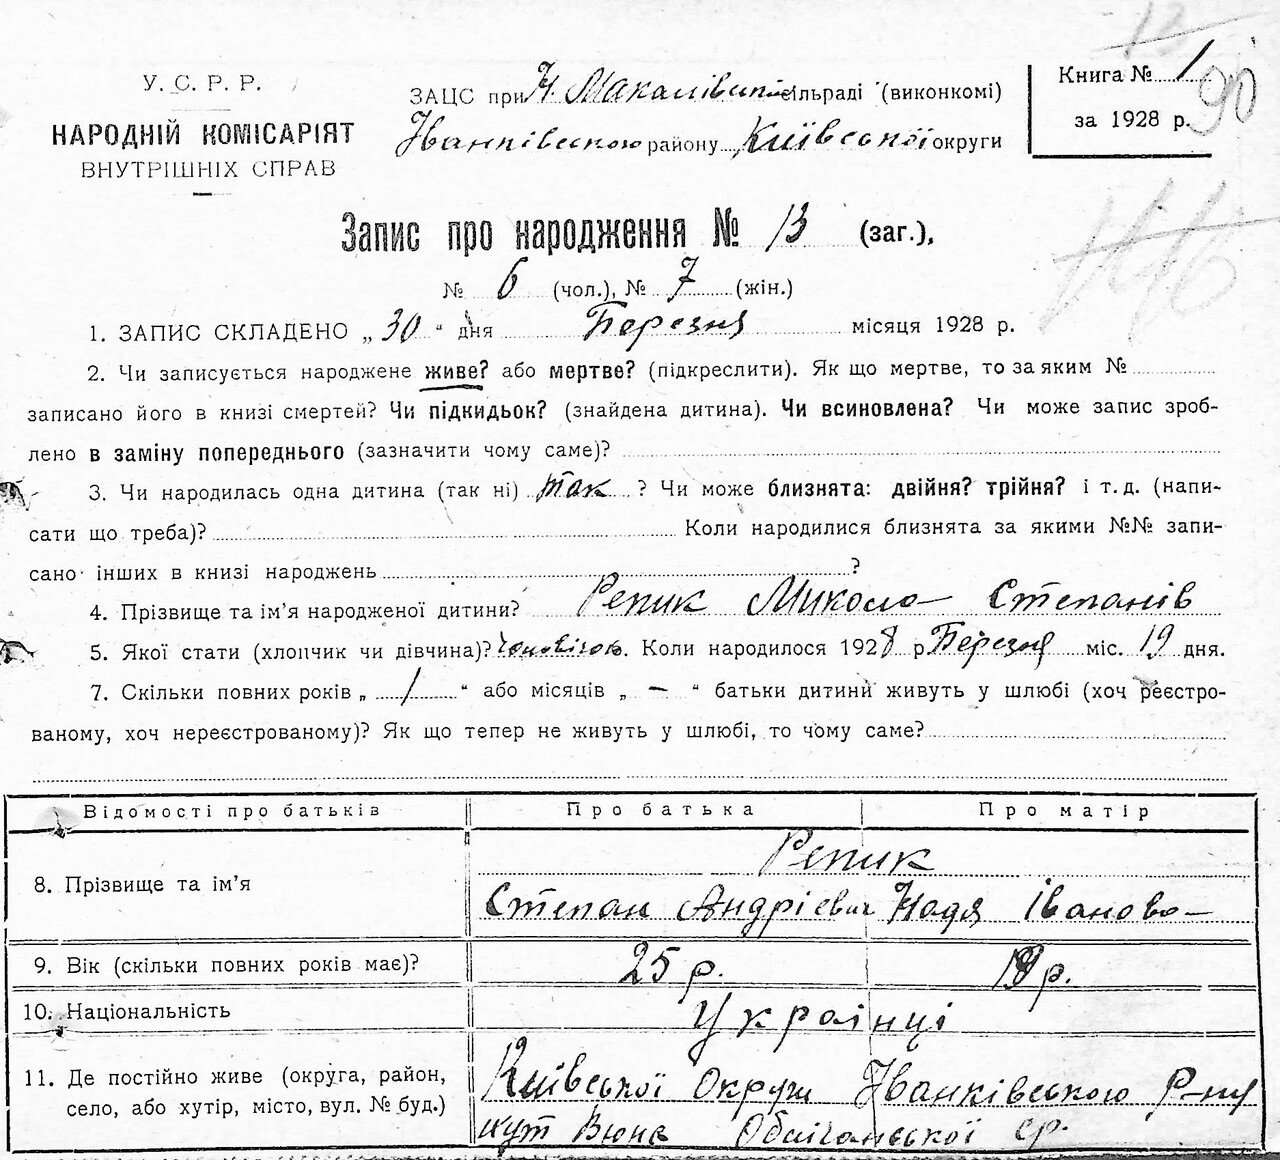 У. С. Р. Р.
НАРОДНІЙ КОМІСАРІЯТ
ВНУТРІШНІХ СПРАВ
ЗАЦС при Н. Макалівській сільраді (виконкомі)
Іванківського району Київської округи
Книга № 1
за 1928 р.
90
Запис про народження № 13 (заг.),
№ 6 (чол.), № 7 (жін.)
1. ЗАПИС СКЛАДЕНО „ 30 “ дня Березня місяця 1928 р.
2. Чи записується народжене живе? або мертве? (підкреслити). Як що мертве, то за яким №
записано його в книзі смертей? Чи підкидьок? (знайдена дитина). Чи всиновлена? Чи може запис зроб-
лено в заміну попереднього (зазначити чому саме)?
3. Чи народилась одна дитина (так ні) так ? Чи може близнята: двійня? трійня? і т. д. (напи-
сати що треба)? Коли народилися близнята за якими №№ запи-
сано інших в книзі народжень ?
4. Прізвище та ім’я народженої дитини? Репик Микола Степанів
5. Якої стати (хлопчик чи дівчина)? чоловічої. Коли народилося 1928 р Березня міс. 19 дня.
7. Скільки повних років „ 1 “ або місяців „ — “ батьки дитини живуть у шлюбі (хоч реєстро-
ваному, хоч нереєстрованому)? Як що тепер не живуть у шлюбі, то чому саме?
Відомості про батьків Про батька Про матір
8. Прізвище та ім’я Репик
Степан Андрієвич Надя Іванова
9. Вік (скільки повних років має)? 25 р. 19 р.
10. Національність Українці
11. Де постійно живе (округа, район, Київської Округи Іванківського Р-ну
село, або хутір, місто, вул. № буд.) хут Вюне ср.